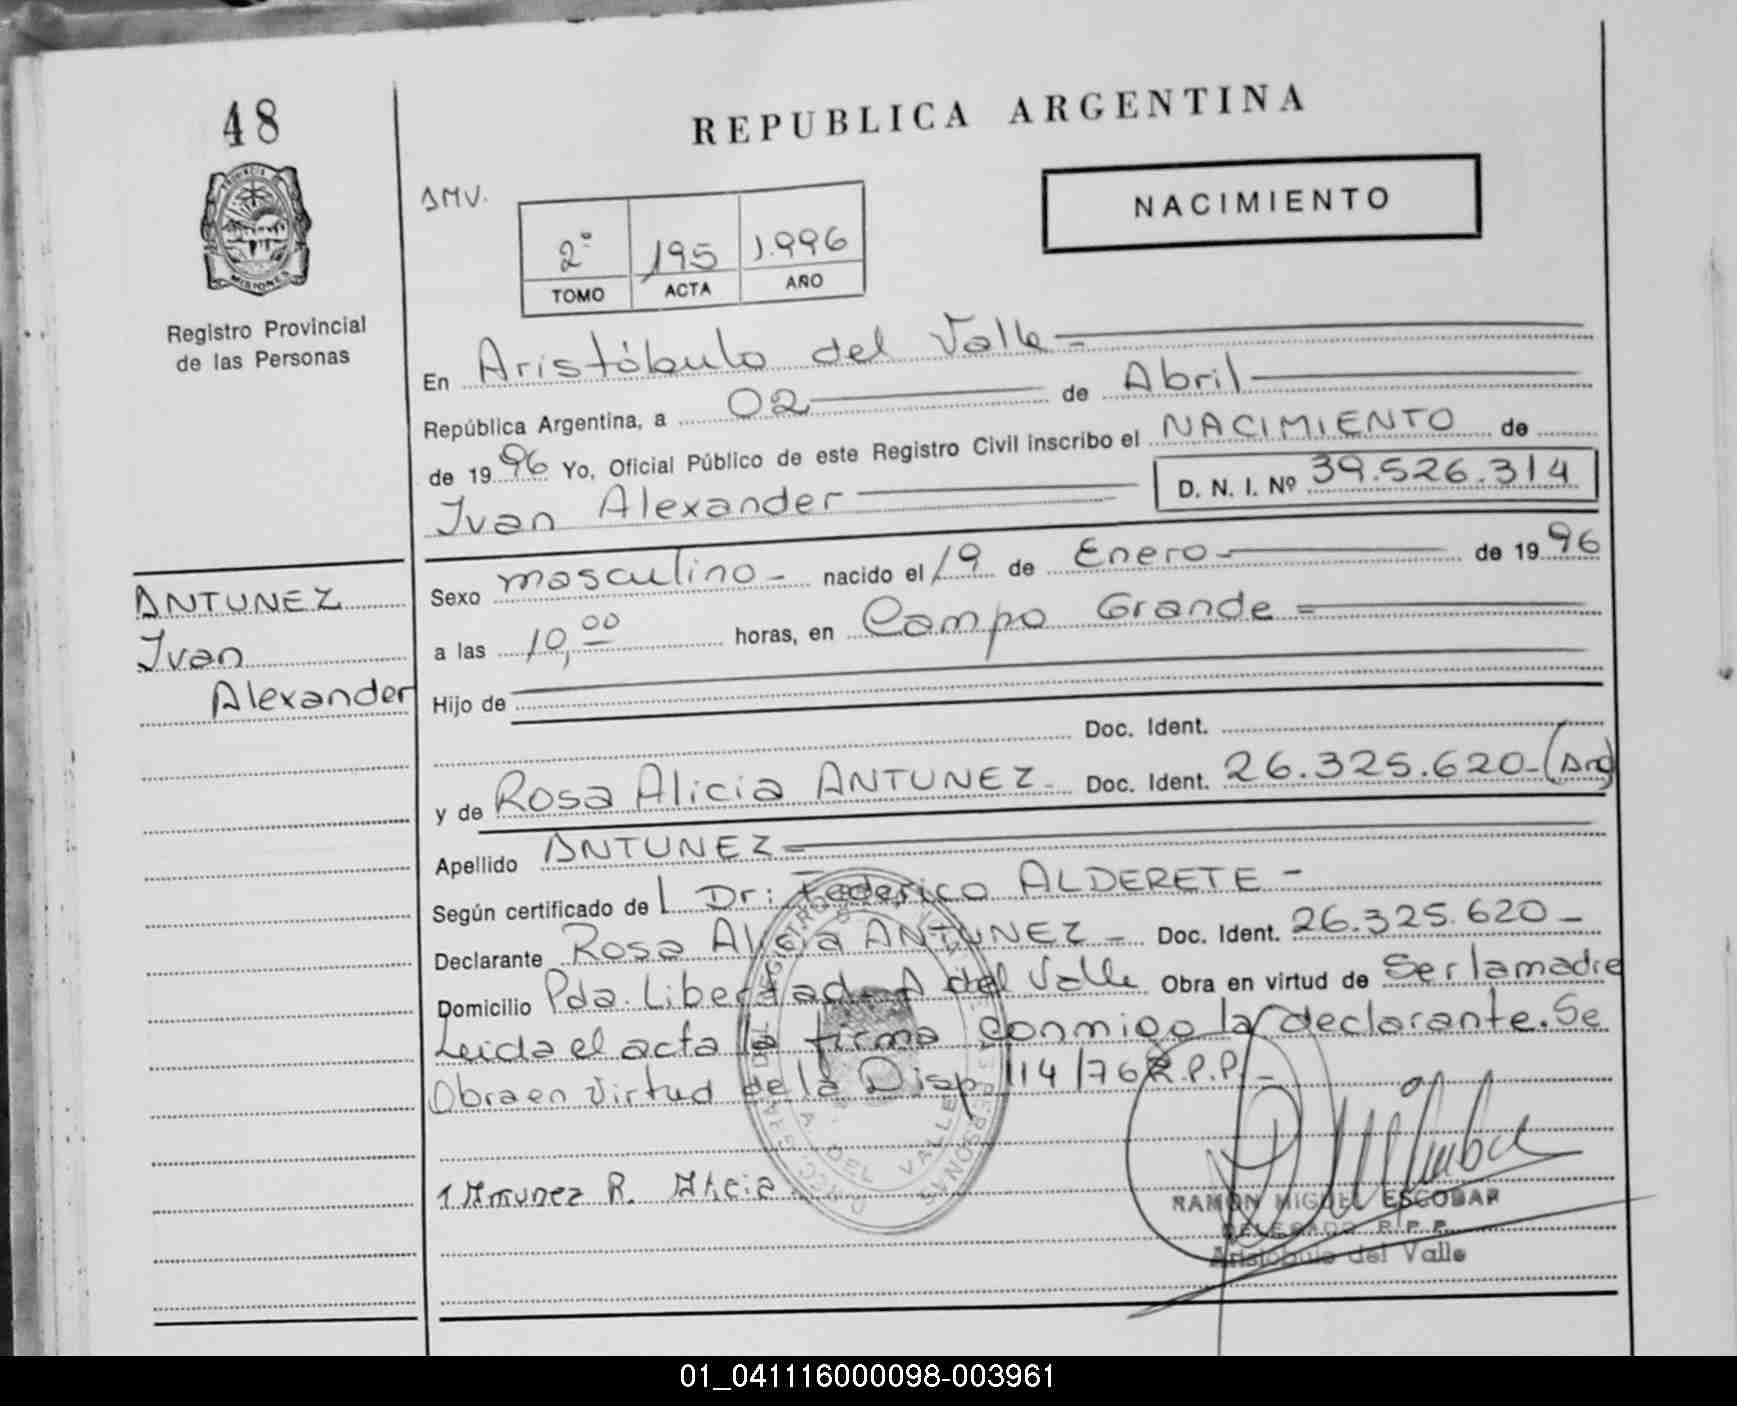 48
REPUBLICA ARGENTINA
PROVINCIA
MISIONES
Registro Provincial
de las Personas
AMV.
NACIMIENTO
2º 195 1.996
TOMO ACTA AÑO
En Aristóbulo del Valle
República Argentina, a 02 de Abril
de 1996 Yo, Oficial Público de este Registro Civil inscribo el NACIMIENTO de
Ivan Alexander D. N. I. Nº 39.526.314
ANTUNEZ
Ivan
Alexander
Sexo masculino - nacido el 19 de Enero - de 1996
a las 10,00 horas, en Campo Grande
Hijo de
Doc. Ident.
y de Rosa Alicia ANTUNEZ - Doc. Ident. 26.325.620 - (Arg)
Apellido ANTUNEZ
Según certificado de l Dr: Federico ALDERETE -
Declarante Rosa Alicia ANTUNEZ - Doc. Ident. 26.325.620 -
Domicilio Pda. Libertad - A del Valle Obra en virtud de Ser la madre
Leida el acta la firma conmigo la declarante. Se
Obra en Virtud de la Disp 114/76 R.P.P. -
Antunez R. Alicia
RAMON MIGUEL ESCOBAR
DELEGADO R.P.P.
Aristóbulo del Valle
A DEL VALLE
PERSONAS
01_041116000098-003961